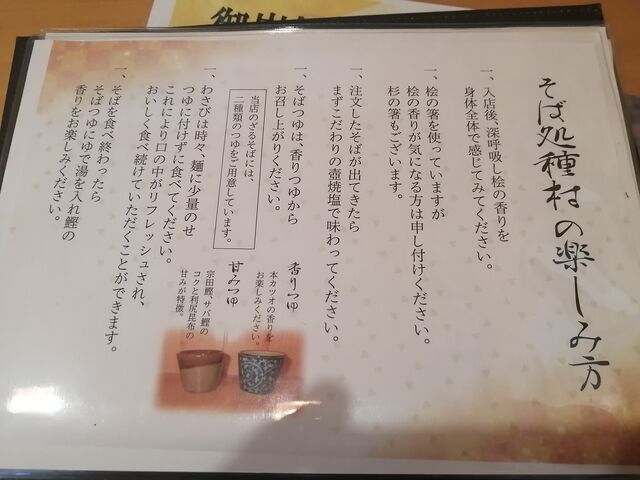 そば処種村の楽しみ方
一、入店後、深呼吸し桧の香りを
身体全体で感じてみてください。
一、桧の箸を使っていますが
桧の香りが気になる方は申し付けください。
杉の箸もございます。
一、注文したそばが出てきたら
まずこだわりの壺焼塩で味わってください。
一、そばつゆは、香りつゆから
お召し上がりください。
当店のざるそばには、
二種類のつゆをご用意しています。
香りつゆ
本カツオの香りを
お楽しみください。
甘みつゆ
宗田鰹、サバ鰹の
コクと利尻昆布の
甘みが特徴。
一、わさびは時々、麺に少量のせ
つゆに付けずに食べてください。
これにより口の中がリフレッシュされ、
おいしく食べ続けていただくことができます。
一、そばを食べ終わったら
そばつゆにゆで湯を入れ鰹の
香りをお楽しみください。